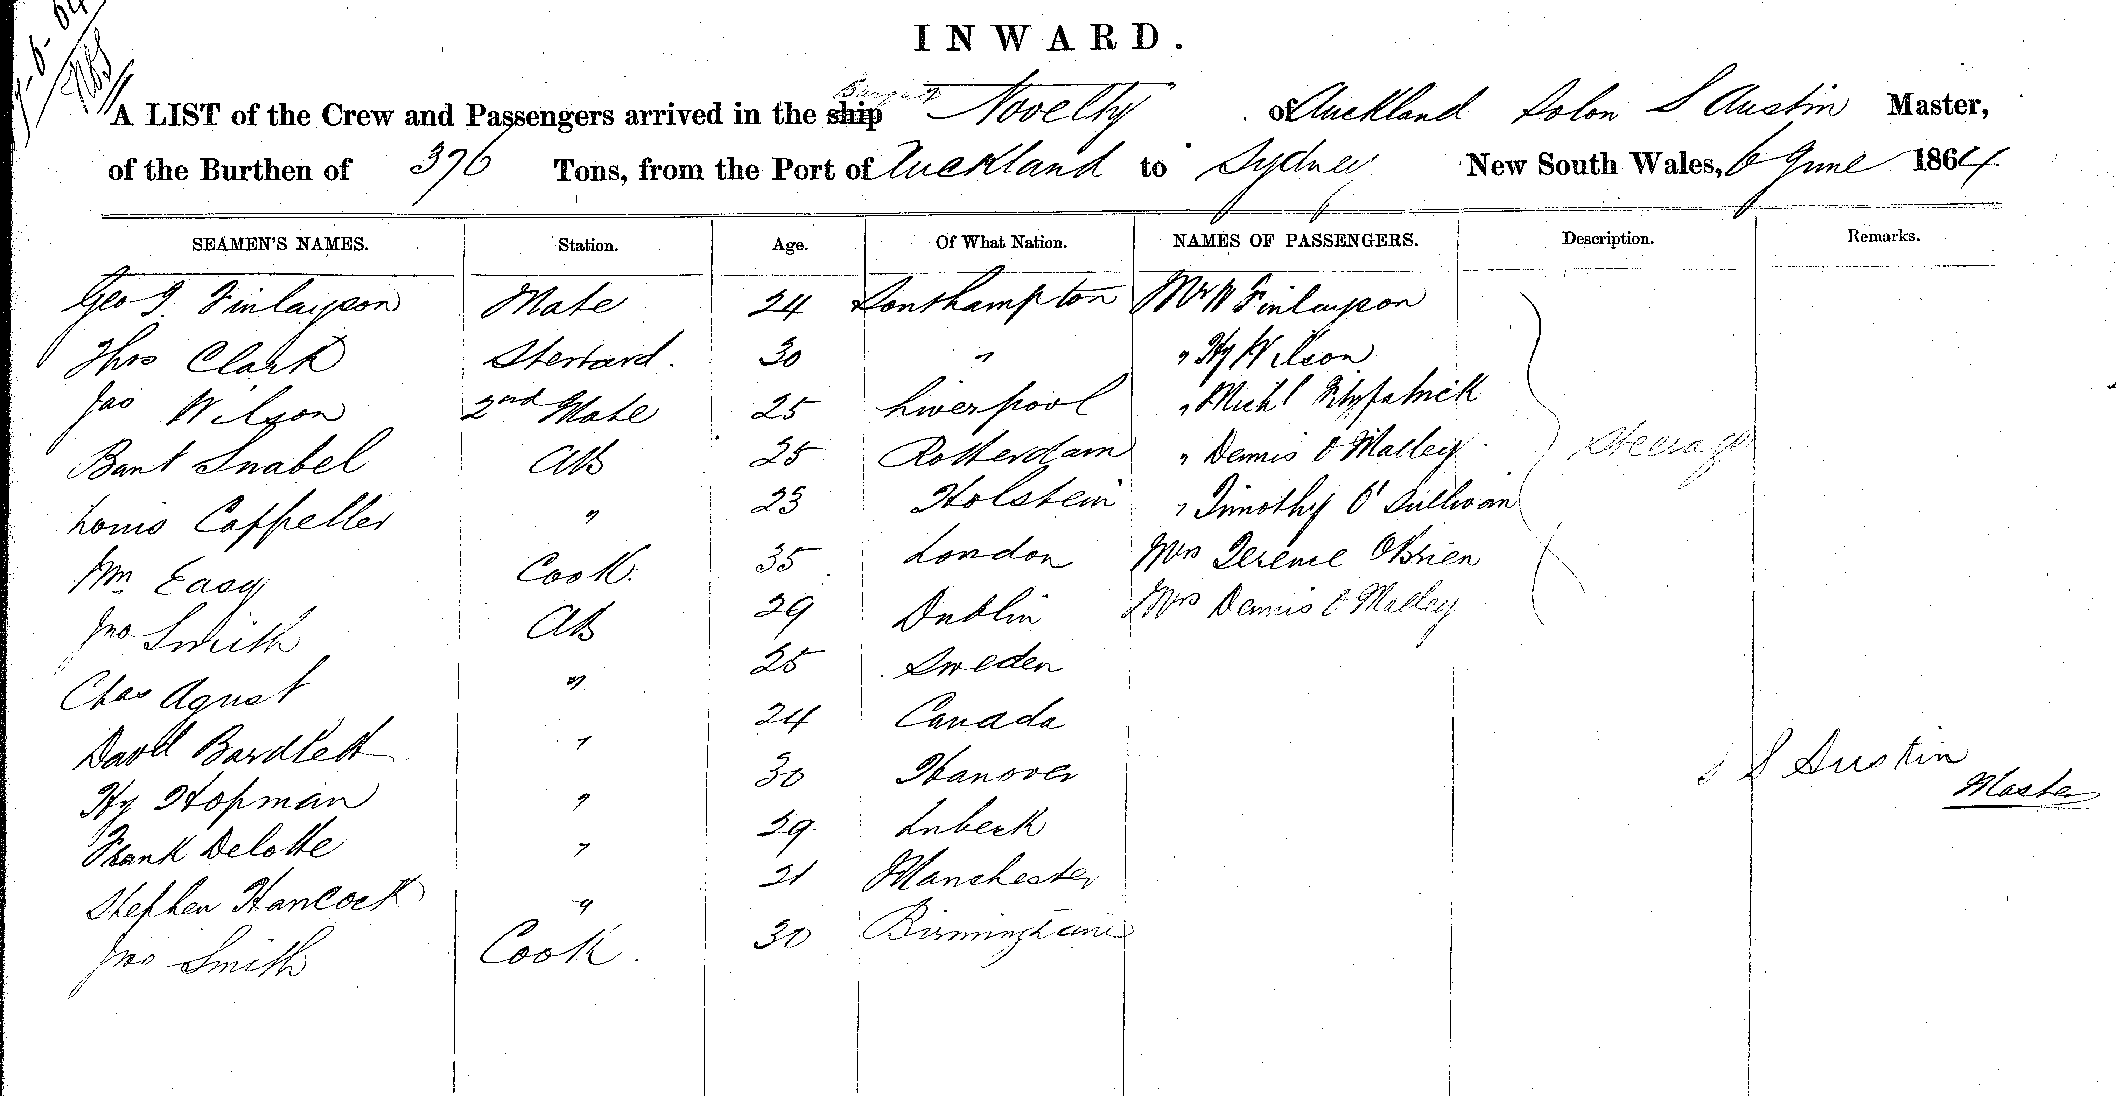 INWARD.
A LIST of the Crew and Passengers arrived in the ship Barque Novelty of Auckland Solon S Austin Master,
of the Burthen of 376 Tons, from the Port of Auckland to Sydney New South Wales, 6 June 1864
SEAMEN'S NAMES. Station. Age. Of What Nation. NAMES OF PASSENGERS. Description. Remarks.
Geo T. Finlayson Mate 24 Southampton Mr W Finlayson
Thos Clark Steward. 30 " " Hy Wilson
Jas Wilson 2nd Mate 25 Liverpool " Michl Fitzpatrick
Bant Snabel AB 25 Rotterdam " Dennis O Malley Steerage
Louis Cappeller " 23 Holstein " Timothy O' Sullivan
Wm Easy Cook. 35 London Mrs Terence OBrien
Jno Smith AB 29 Dublin Mrs Dennis O Malley
Chas Agust " 25 Sweden
Davd Bardlett " 24 Canada
Hy Hopman " 30 Hanover
Frank Delotte " 29 Lubeck
Stephen Hancock " 21 Manchester
Jno Smith Cook. 30 Birmingham
S S Austin
Master